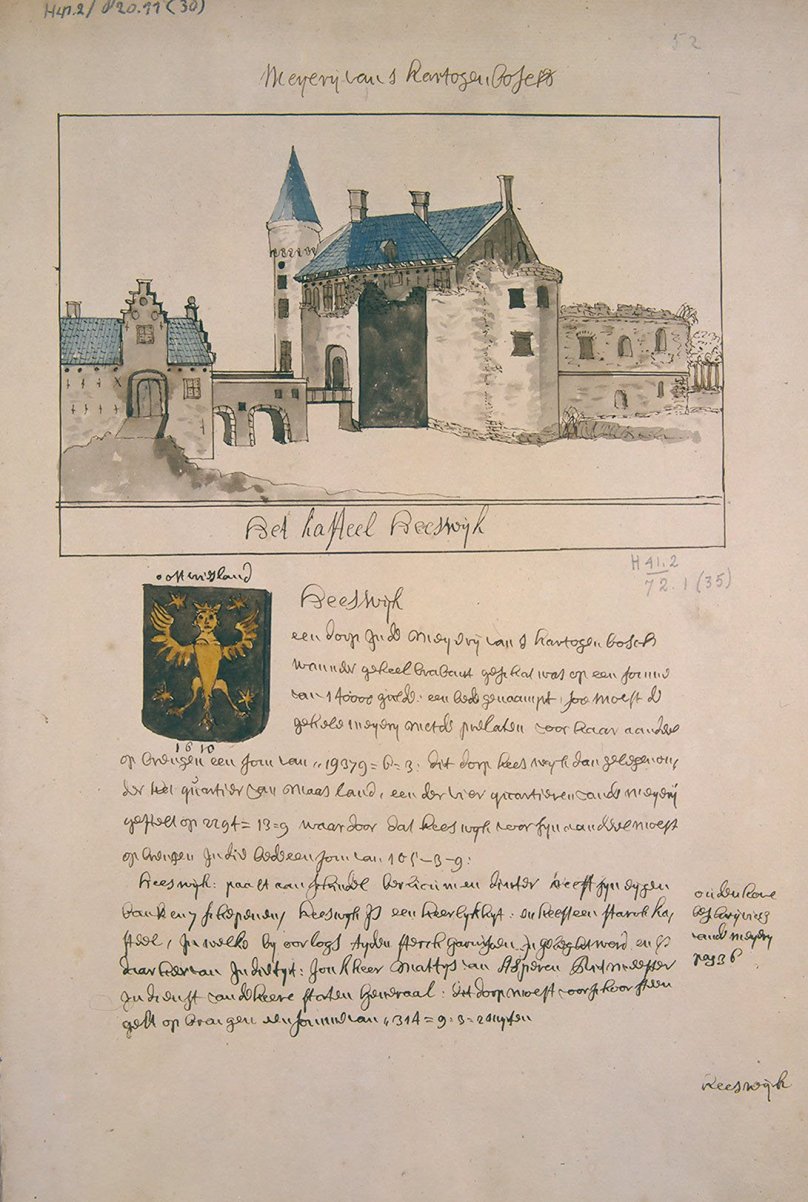 H41.2/ 20.11 (30)
52
Meyerij van s hartogenbosch
Het kasteel Heeswijk
H 41.2
72.1 (35)
oost vriesland
1610
Heeswijk
een dorp in de Meyerij van s hartogenbosch
wanneer geheel brabant geschat was op een somme
van 140000 gulde: een bede genaampt, soo moest de
gehele meyerij met de prelaten voor haar aandeel
op brengen een som van 19379=6=3: dit dorp heeswijk dan gelegen on,
der het quartier van Maasland, een der vier quartieren vande meyerij
gestelt op 2294=13=9 waar door dat heeswijk voor syn aandeel moest
op brengen in die bede een som van 105-3-9:
heeswijk: paalt aan schindel berlicum en dinter heeft syn eygen
bank en 7 schepenen, heeswijk is een heerlykhyt: en heeft een starck ka,
steel, in welke by oorlogs tyden sterck garnisoen in gelegt word en is
daar heer van in die tyt: Jonkheer Mattys van Asperen Ritmeester
in dienst van de heere staten generaal: dit dorp moest voor schoorsteen
gelt op brengen een somme van 314=9:3=2
oudenhove
beschrijving
vande meyery
pag 36
Heeswijk